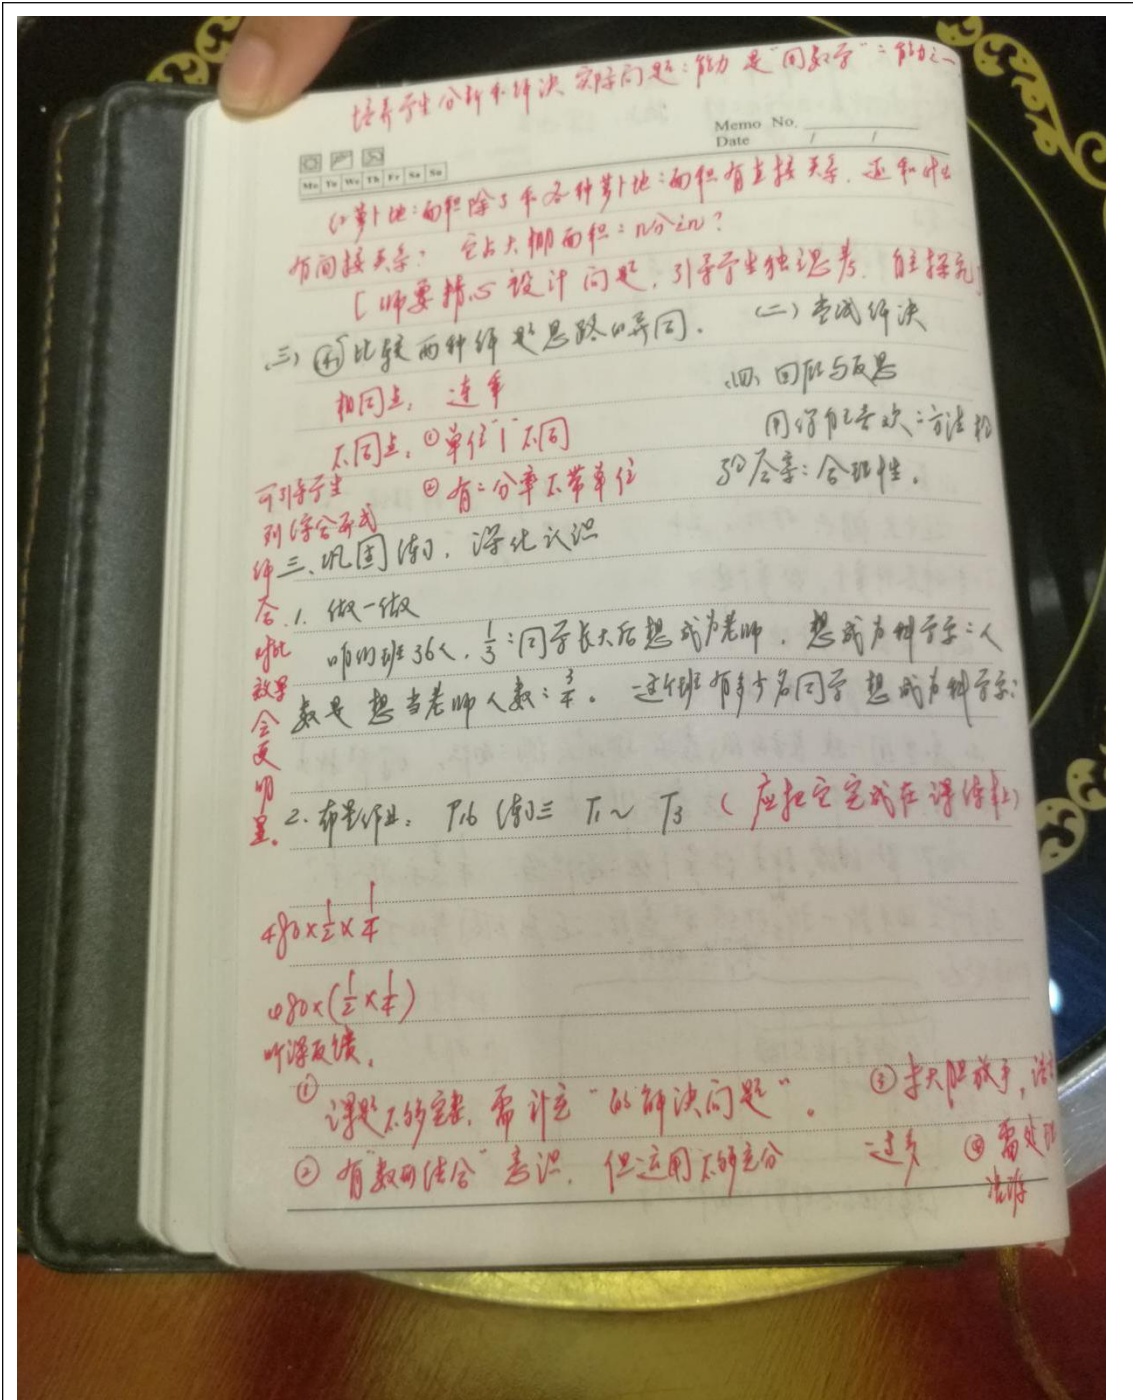 培养学生分析和解决实际问题:能力是“同数学”:能力之一
Memo No.
Date / /
Mo Tu We Th Fr Sa Su
(2)萝卜地:面积除了和各种萝卜地:面积有直接关系,还和什么
有间接关系? 它占大棚面积:几分之几?
[师要精心设计问题,引导学生独立思考,自主探究
(二)尝试解决
(三) 比较两种解题思路的异同。
相同点: 连乘
(四)回顾与反思
不同点:①单位“1”不同
用你自己喜欢:方法检
②有:分率不带单位
验答案:合理性。
可引导学生
列综合算式
结合对比效果会更明显。
三、巩固练习,深化认识
1. 做一做
咱们班36人,1/3:同学长大后想成为老师,想成为科学家:人
数是想当老师人数:3/4。这个班有多少名同学想成为科学家:
2. 布置作业: P16 练习三 T1~T3 (应把它完成在课堂上)
480×1/2×1/4
480×(1/2×1/4)
听课反馈:
① 课题不够完整,需补充“的解决问题”。
② 有“数形结合”意识,但运用不够充分
③ 大胆放手,
过多
④ 需处理